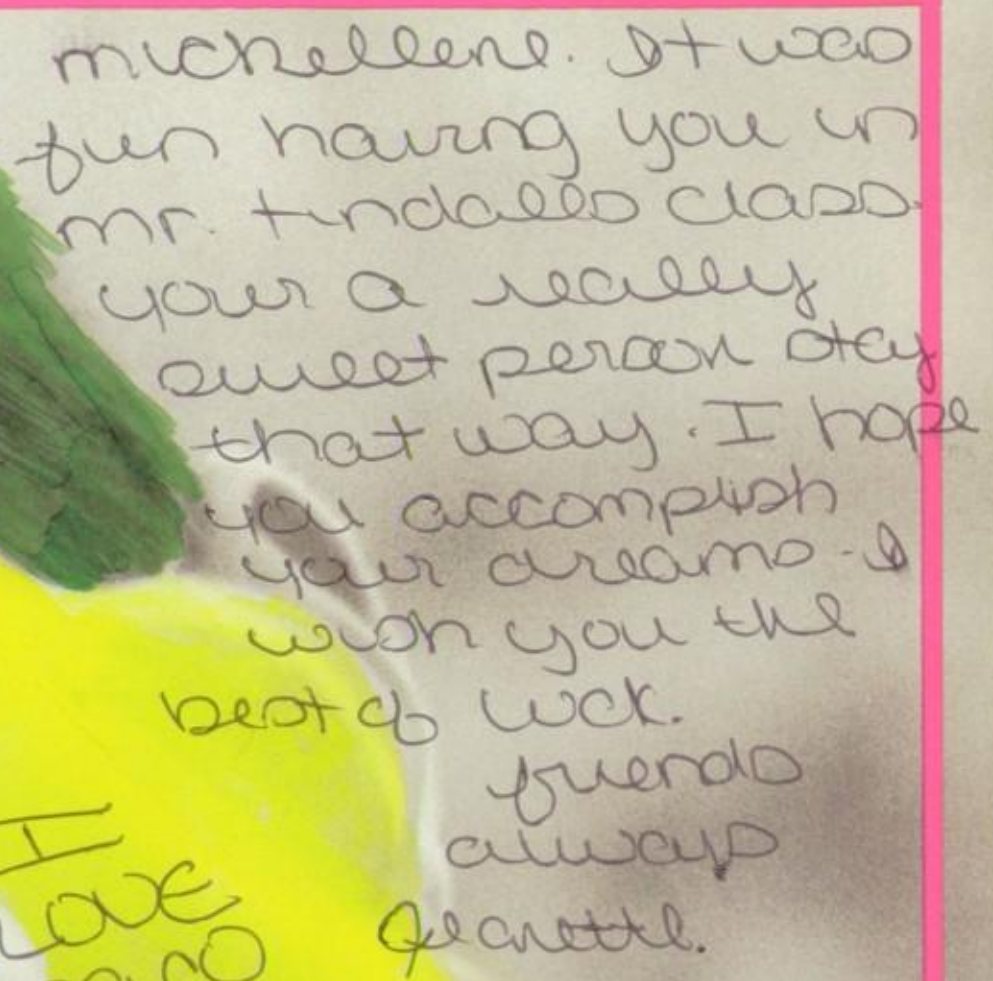 michellene. It was
fun having you in
mr. tindalls class.
your a really
sweet person stay
that way. I hope
you accomplish
your dreams. I
wish you the
best of luck.
friends
always
Jeanette.
I
LOVE